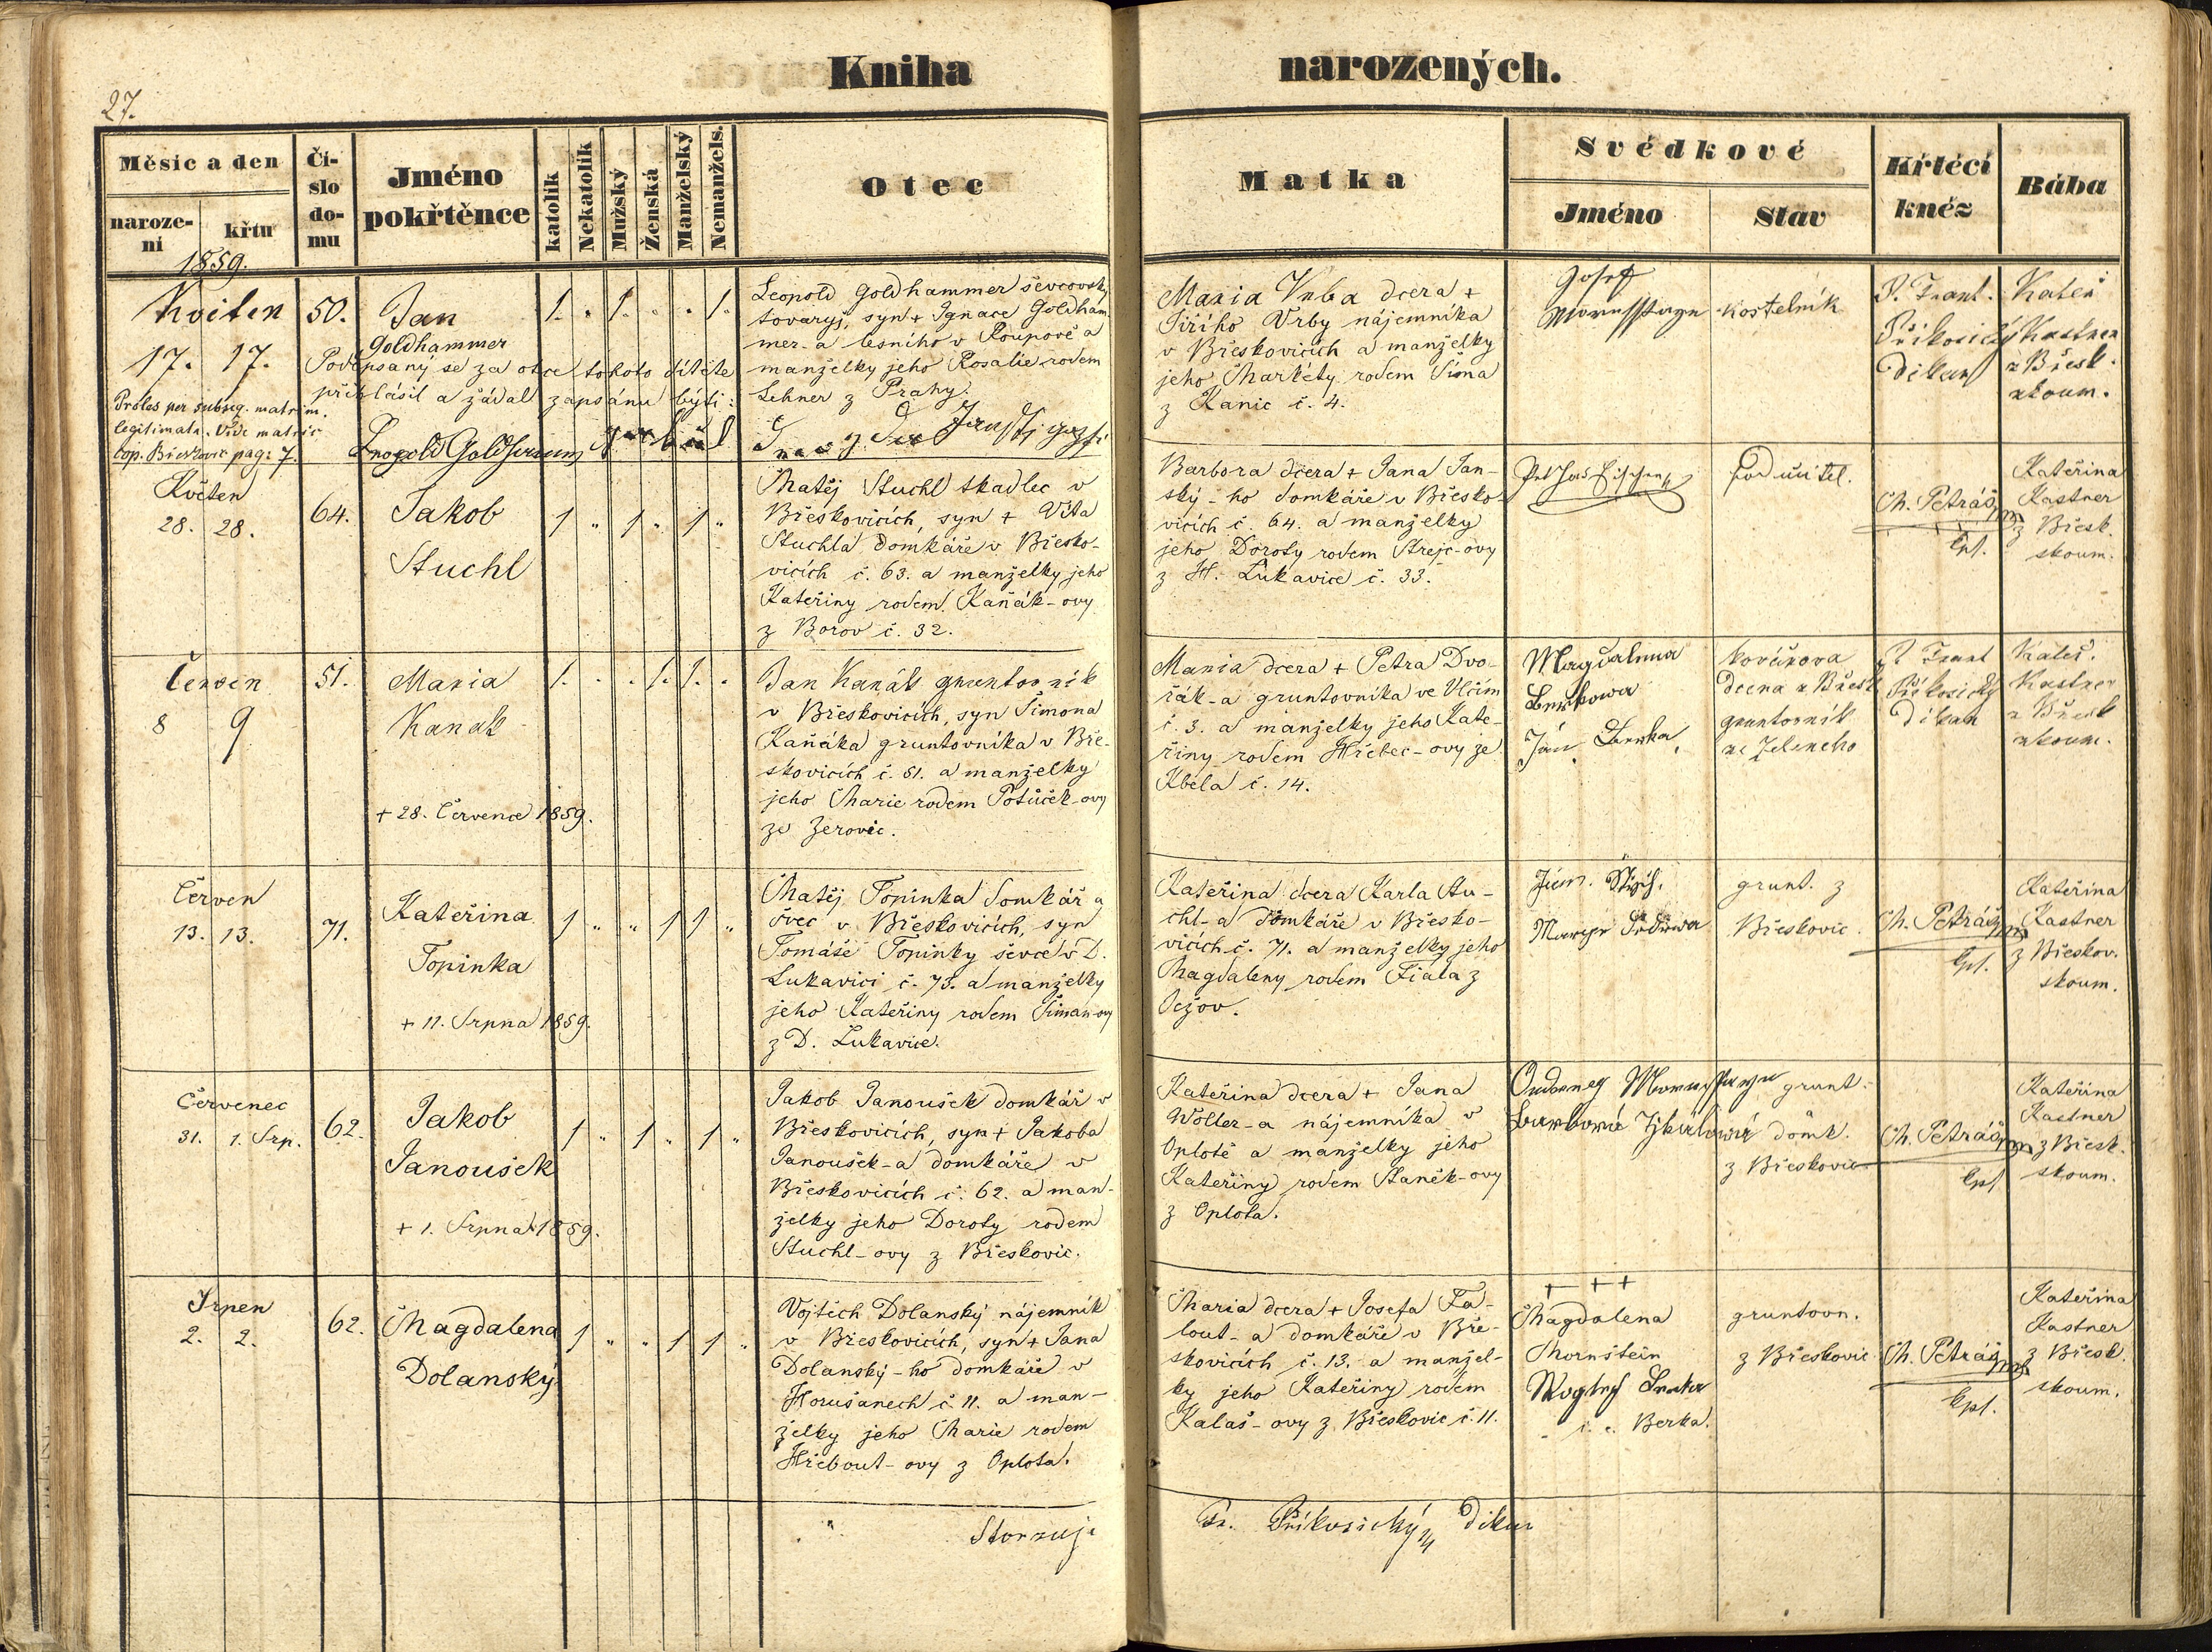 Kniha narozených.
27.
Měsíc a den
narození
křtu
1859.
Číslo domu
Jméno pokřtěnce
katolík
Nekatolík
Mužský
Ženská
Manželský
Nemanžels.
Otec
Matka
Svědkové
Jméno
Stav
Křtěcí kněz
Bába
Květen
17. 17.
50.
Jan
Goldhammer
1. . 1. . . 1.
Podepsaný se za otce tohoto dítěte
přihlásil a žádal zapsánu býti:
Proles per subseq. matrim.
legitimata. Vide matric
cop. Břeskovic pag: 7.
Leopold Goldhammer ševcovský
tovaryš, syn + Ignace Goldham
mer-a lesního v Roupově a
manželky jeho Rosalie rodem
Lehner z Prahy.
Maria Vrba dcera +
Jiřího Vrby nájemníka
v Břeskovicích a manželky
jeho Markéty rodem Šima
z Kanic č. 4.
Josef
kostelník
P. Frant.
Příkosický
Děkan
Kateř
Kastner
z Břesk.
zkoum.
Květen
28. 28.
64.
Jakob
Stuchl
1 " 1 " 1 "
Matěj Stuchl tkadlec v
Břeskovicích, syn + Víta
Stuchla domkáře v Břesko-
vicích č. 63. a manželky jeho
Kateřiny rodem Kaňák-ovy
z Borov č. 32.
Barbora dcera + Jana Jan-
ský-ho domkáře v Břesko-
vicích č. 64. a manželky
jeho Doroty rodem Strejc-ovy
z H. Lukavice č. 33.
podučitel.
M. Petráš
kpl.
Kateřina
Kastner
z Břesk.
zkoum.
Červen
8 9
51.
Maria
Kanak
+ 28. Července 1859.
1. . . 1. 1. .
Jan Kanák gruntovník
v Břeskovicích, syn Šimona
Kaňáka gruntovníka v Bře-
skovicích č. 51. a manželky
jeho Marie rodem Potůček-ovy
ze Žerovic.
Maria dcera + Petra Dvo-
řák-a gruntovníka ve Vlčím
č. 3. a manželky jeho Kate-
řiny rodem Hřebec-ovy ze
Kbela č. 14.
Magdalena
Berkowa
Ján Berka
kovářova
dcera z Břesk
gruntovník
ze Zeleneho
P. Frant
Příkosický
Děkan
Kateř.
Kastner
z Břesk
zkoum.
Červen
13. 13.
71.
Kateřina
Topinka
+ 11. Srpna 1859.
1 " " 1 1 "
Matěj Topinka domkář a
švec v Břeskovicích, syn
Tomáše Topinky ševce v D.
Lukavici č. 73. a manželky
jeho Kateřiny rodem Šiman-ovy
z D. Lukavice.
Kateřina dcera Karla Stu-
chl-a domkáře v Břesko-
vicích č. 71. a manželky jeho
Magdaleny rodem Fiala z
Vežov.
grunt. z
Břeskovic.
M. Petráš
kpl.
Kateřina
Kastner
z Břeskov.
zkoum.
Červenec
31. 1. Srp.
62.
Jakob
Janoušek
+ 1. Srpna 1859.
1 " 1 " 1 "
Jakob Janoušek domkář v
Břeskovicích, syn + Jakoba
Janoušek-a domkáře v
Břeskovicích č. 62. a man-
želky jeho Doroty rodem
Stuchl-ovy z Břeskovic.
Kateřina dcera + Jana
Woller-a nájemníka v
Oplotě a manželky jeho
Kateřiny rodem Staněk-ovy
z Oplota.
grunt.
domk.
z Břeskovic
M. Petráš
kpl.
Kateřina
Kastner
z Břesk.
zkoum.
Srpen
2. 2.
62.
Magdalena
Dolanský
1 " " 1 1 "
Vojtěch Dolanský nájemník
v Břeskovicích, syn + Jana
Dolanský-ho domkáře v
Horušanech č. 11. a man-
želky jeho Marie rodem
Hřebout-ovy z Oplota.
Maria dcera + Josefa Fa-
lout-a domkáře v Bře-
skovicích č. 13. a manžel-
ky jeho Kateřiny rodem
Kalaš-ovy z Břeskovic č. 11.
+ + +
Magdalena
Mornstein
Berka.
gruntovn.
z Břeskovic
M. Petráš
kpl.
Kateřina
Kastner
z Břesk.
zkoum.
Stvrzuje
Fr. Příkosický Děkan